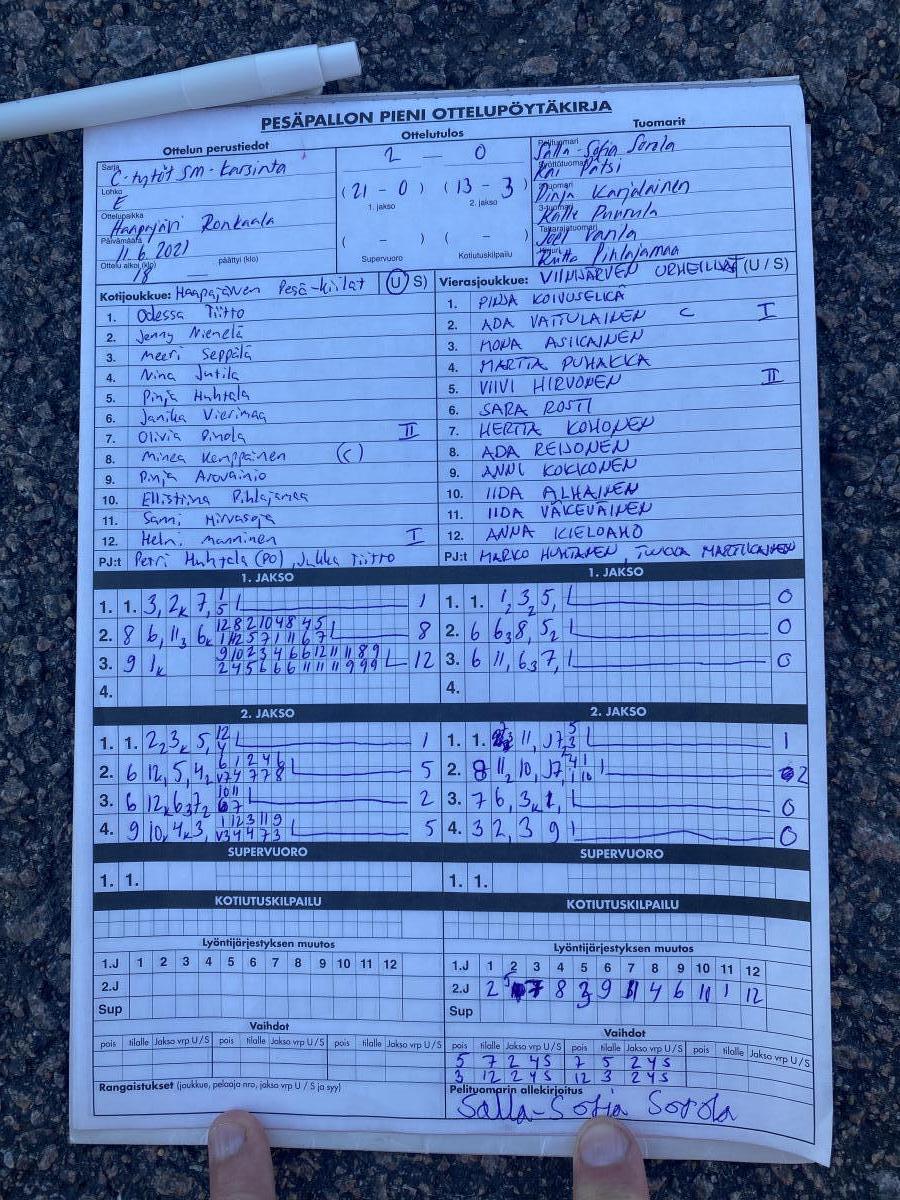 PESÄPALLON PIENI OTTELUPÖYTÄKIRJA
Ottelun perustiedot
Ottelutulos
Tuomarit
Sarja
C-tytöt SM-karsinta
Lohko
E
Ottelupaikka
Haapajärvi Ronkaala
Päivämäärä
11.6.2021
Ottelu alkoi (klo) 18 päättyi (klo)
2 – 0
(21 - 0) (13 - 3)
1. jakso 2. jakso
( - ) ( - )
Supervuoro Kotiutuskilpailu
Salla-Sofia Sorola
Kai Pätsi
Pinja Karjalainen
3-tuomari
Kalle Purrula
Takarajatuomari
Joel Vanla
Riitta Pihlajamaa
Kotijoukkue: Haapajärven Pesä-kiilat (U S)
1. Odessa Tiitto
2. Jenny Nienelä
3. Meeri Seppälä
4. Nina Jutila
5. Pinja Huhtala
6. Janika Vierimaa
7. Olivia Pinola II
8. Minea Kemppainen (C)
9. Pinja Arovainio
10. Ellistiina Pihlajamaa
11. Sanni Hirvasoja
12. Helmi Manninen I
PJ:t Petri Huhtala (PO), Jukka Tiitto
Vierasjoukkue: VIINIJÄRVEN URHEILIJAT (U / S)
1. PINJA KOIVUSELKÄ
2. ADA VATTULAINEN C I
3. MONA ASIKAINEN
4. MARTTA PUHAKKA
5. VIIVI HIRVONEN II
6. SARA ROSTI
7. HERTTA KOHONEN
8. ADA REIJONEN
9. ANNI KOKKONEN
10. IIDA ALHAINEN
11. IIDA VÄKEVÄINEN
12. ANNA KIELOAHO
PJ:t MARKO HUHTANEN, MARTIKAINEN
1. JAKSO
1. 1. 3, 2k 7, 1
5 1
2. 8 6, 11 3 6k 12 8 2 10 4 8 4 5
1 11 2 5 7 1 11 6 7 8
3. 9 1k 9 10 2 3 4 6 6 12 11 11 8 9
2 4 5 6 6 6 11 11 11 9 9 9 12
4.
1. JAKSO
1. 1. 1, 3 2 5, 0
2. 6 6 3 8, 5 2 0
3. 6 11, 6 3 7, 0
4.
2. JAKSO
1. 1. 2 2 3k 5, 12
4 1
2. 6 12, 5, 4 2 6 1 2 4 6
V7 4 7 7 8 5
3. 6 12k 6 3 7 2 10 11
6 7 2
4. 9 10k 4k 3, 1 12 3 11 9
V3 4 4 7 3 5
2. JAKSO
1. 1. 11, J7, 5
3 1
2. 8 11 2 10, J7 2
3. 7 6, 3k 1, 0
4. 3 2, 3 9 1 0
SUPERVUORO
1. 1.
SUPERVUORO
1. 1.
KOTIUTUSKILPAILU
KOTIUTUSKILPAILU
Lyöntijärjestyksen muutos
1.J 1 2 3 4 5 6 7 8 9 10 11 12
2.J
Sup
Lyöntijärjestyksen muutos
1.J 1 2 3 4 5 6 7 8 9 10 11 12
2.J 2 5 7 8 3 9 11 4 6 10 1 12
Sup
Vaihdot
pois tilalle Jakso vrp U / S pois tilalle Jakso vrp U / S pois tilalle Jakso vrp U / S
Vaihdot
pois tilalle Jakso vrp U / S pois tilalle Jakso vrp U / S pois tilalle Jakso vrp U / S
5 7 2 4S 7 5 2 4S
3 12 2 4S 12 3 2 4S
Rangaistukset (joukkue, pelaaja nro, jakso vrp U / S ja syy)
Pelituomarin allekirjoitus
Salla-Sofia Sorola